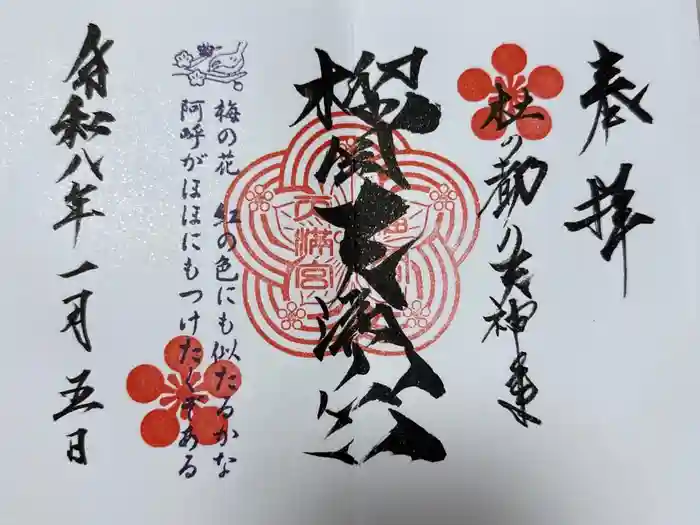 奉拝
杜の
榴岡天満宮
天満宮
梅の花 紅の色にも似たるかな
阿呼がほほにもつけたくぞある
令和八年一月五日